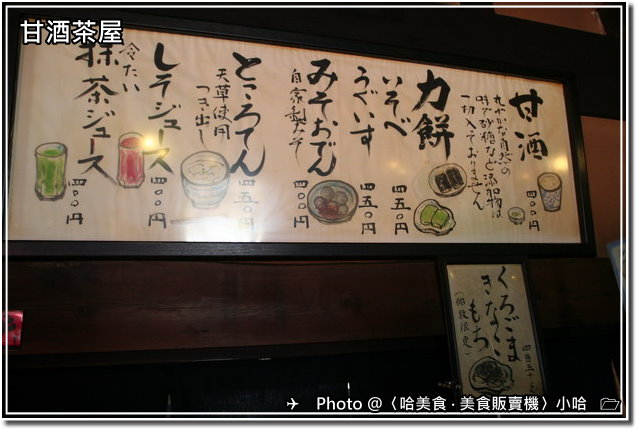 甘酒茶屋
甘酒
まろやかな自然の
味で砂糖など添加物は
一切入っておりません
四〇〇円
力餅
いそべ
四五〇円
うぐいす
四五〇円
みそおでん
自家製みそ
四〇〇円
ところてん
天草使用
つき出し
四五〇円
しそジュース
四〇〇円
冷たい
抹茶ジュース
四〇〇円
くろごま
きなこ
もち
(個数限定)
四百五十
Photo @〈哈美食‧美食販賣機〉小哈